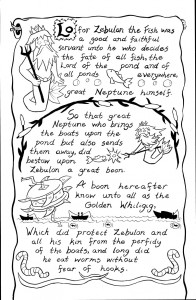 Lo for Zebulon the fish was
a good and faithful
servant unto he who decides
the fate of all fish, the
lord of the pond and of
all ponds everywhere,
great Neptune himself.
So that great
Neptune who brings
the boats upon the
pond but also sends
them away, did
bestow upon
Zebulon a great boon.
A boon hereafter
know unto all as the
Golden Whiligg,
Which did protect Zebulon and
all his kin from the perfidy
of the boats, and long did
he eat worms without
fear of hooks.